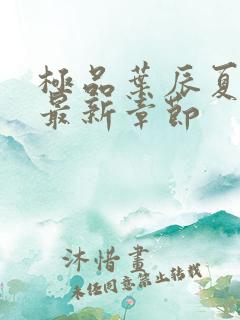 極品葉辰夏
最新章節
沐惜畫
未经同意禁止转载